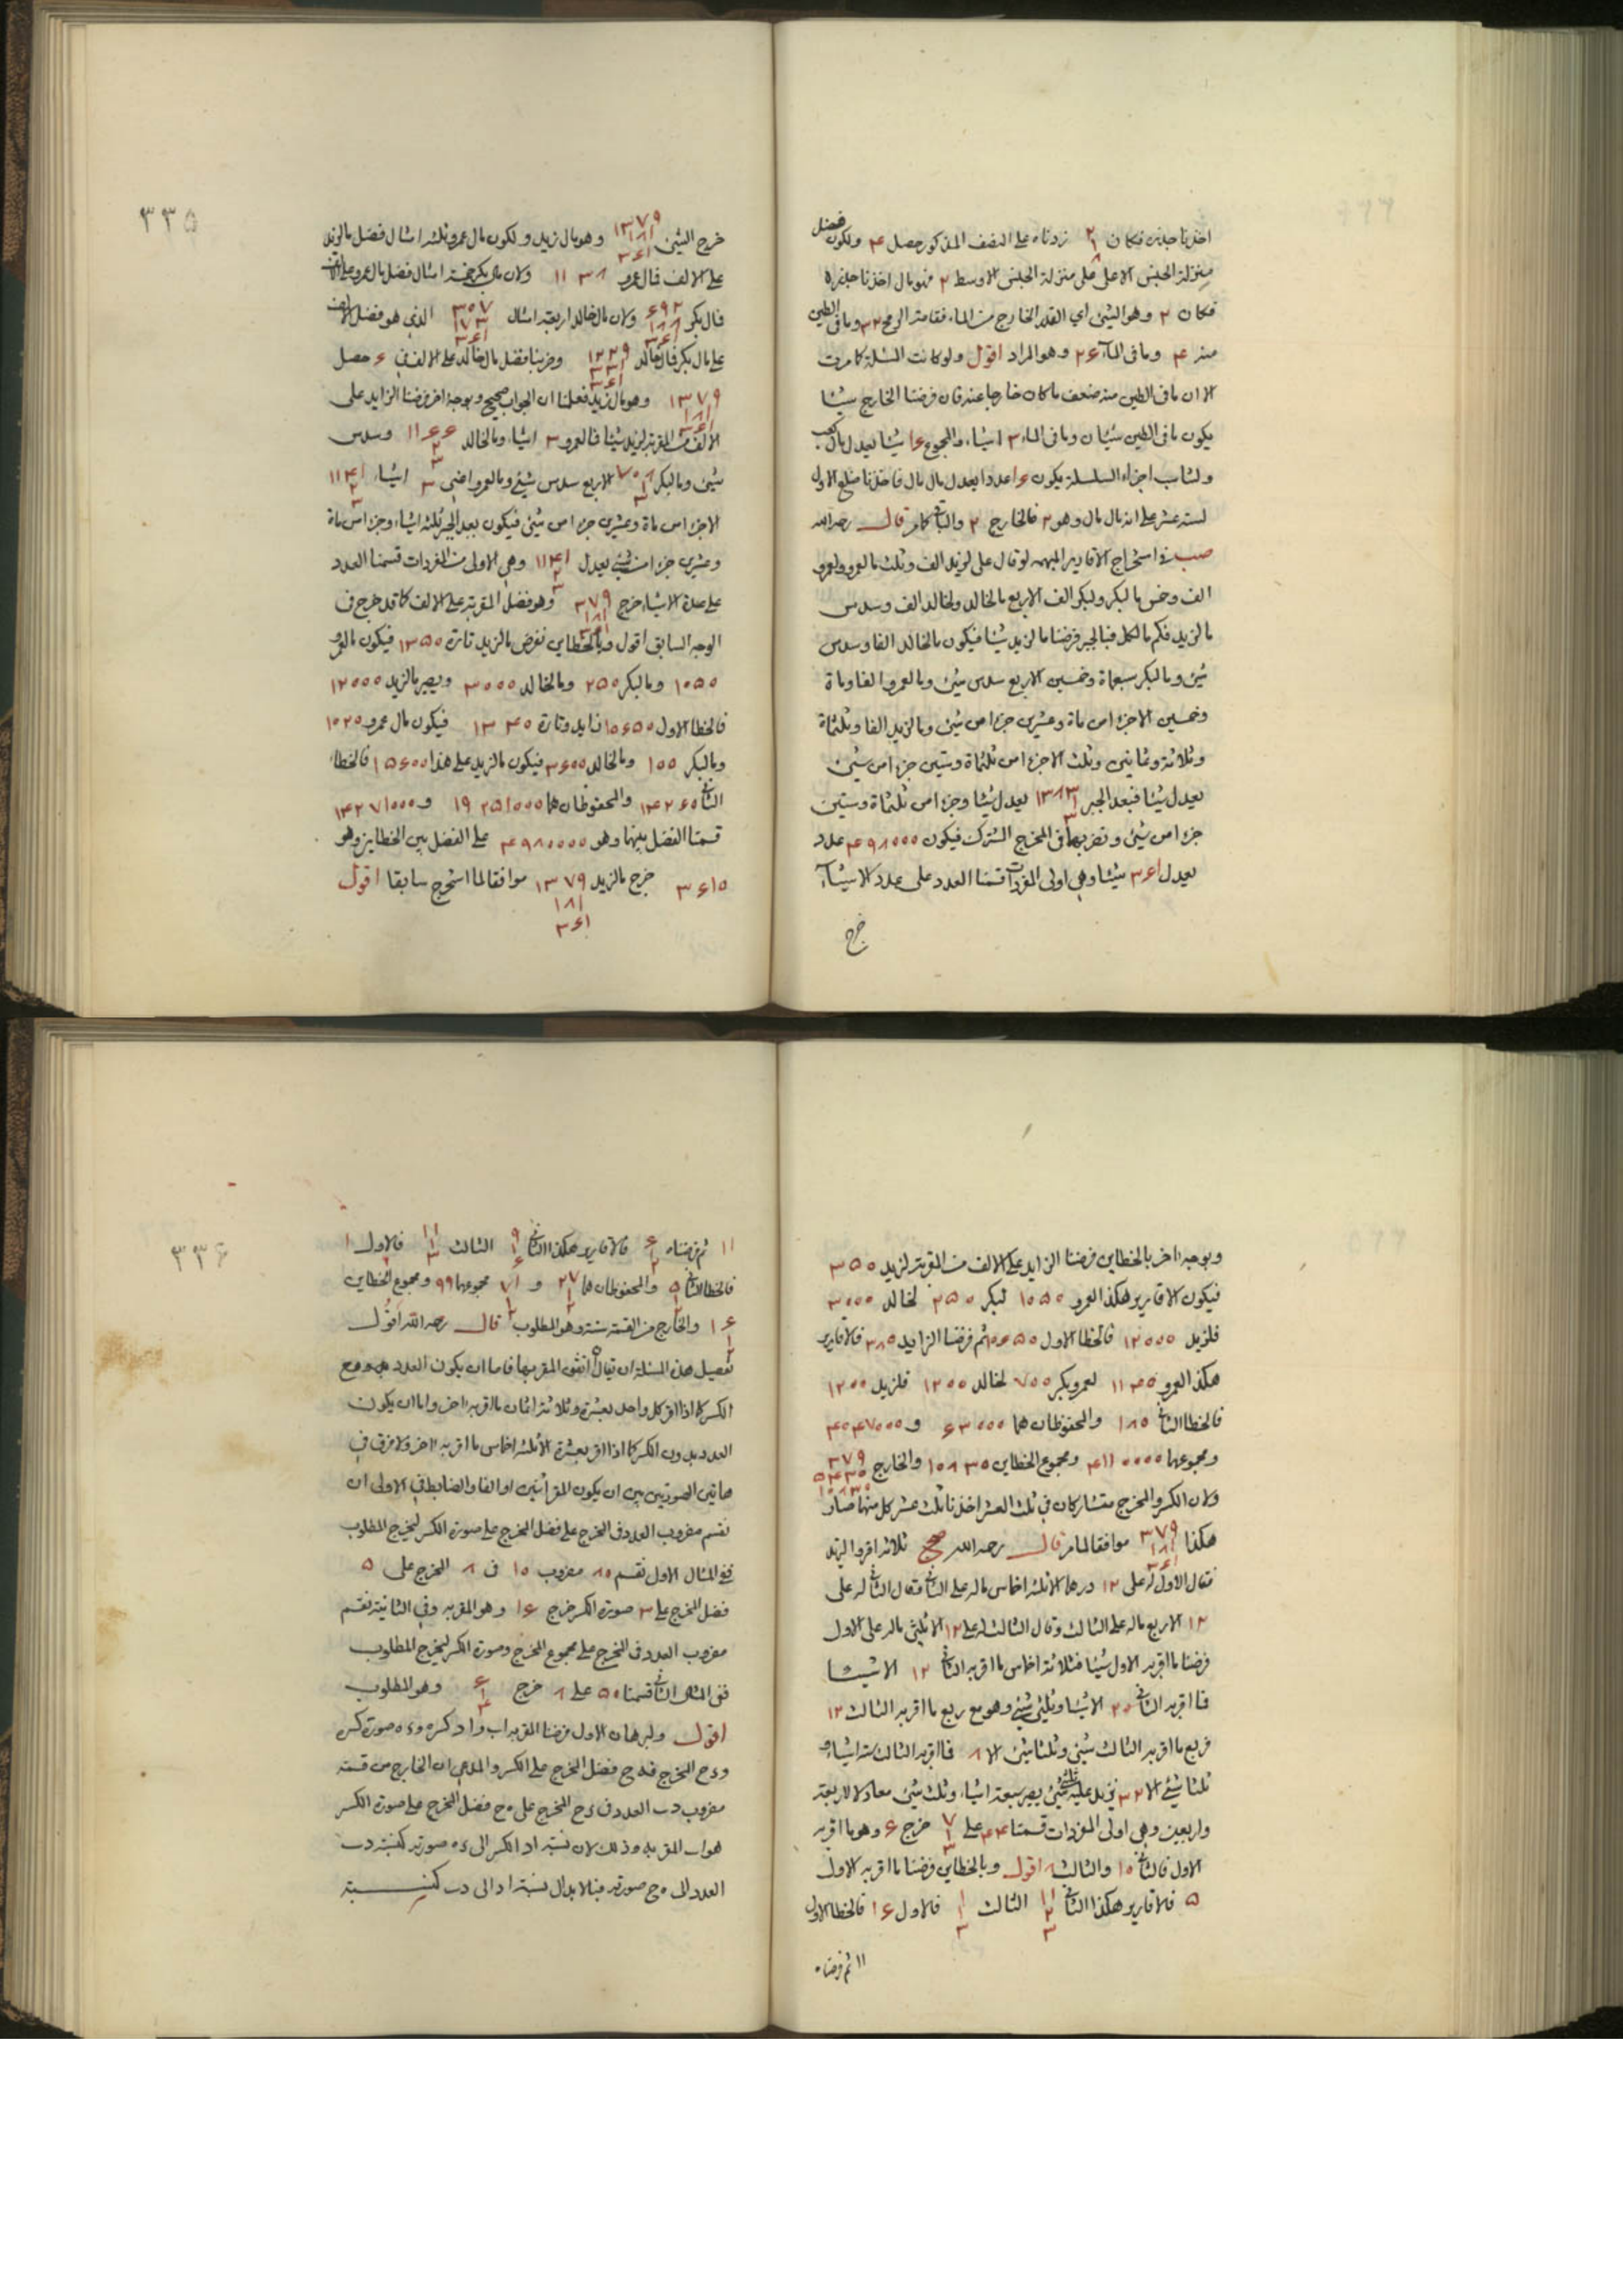 اخذنا جذره فكان ٢ زدناه على النصف المذكور حصل ٤ ولكون فضل
منزلة الجنس الاعلى على منزلة الجنس الاوسط ٢ فهو مال اخذنا جذره
فكان ٢ وهو الشئ اي القدر الخارج من الماء فقامة الرمح ٣٢ وما فى الطين
منه ٤ وما فى الماء ٢٦ وهو المراد اقول ولو كانت المسئلة كما مرت
الا ان ما فى الطين منه ضعف ما كان خارجا عنه فان فرضنا الخارج شيئا
يكون ما فى الطين شيئان وما فى الماء ٣ اشياء والمجموع ١٦ شيئا يعدل مال كعب
لستة عشر على انه مال مال وهو ٢ فالخارج ٢ والباقى كما مر قال رحمه الله
فى استخراج الاقارير المبهمة لو قال على لزيد الف وثلث ما لعمرو ولعمرو
الف وخمس ما لبكر ولبكر الف الا ربع ما لخالد ولخالد الف وسدس
ما لزيد فكم ما لكل فبالجبر فرضنا ما لزيد شيئا فيكون ما لخالد الفا وسدس
شئ وما لبكر سبعماة وخمسين الا ربع سدس شئ وما لعمرو الفا وماة
وخمسين الا جزءا من ماة وعشرين جزءا من شئ وما لزيد الفا وثلثماة
وثلاثة وثمانين وثلث الا جزءا من ثلثماة وستين جزءا من شئ
يعدل شيئا فبعد الجبر ١٣٨٣ يعدل شيئا وجزءا من ثلثماة وستين
جزءا من شئ وتضربهما فى المخرج المشترك فيكون ٤٩٨٠٠٠ عدد
يعدل ٣٦١ شيئا وهى اولى المفردات قسمنا العدد على عدد الاشياء
خرج
٣٣٥
خرج الشئ ١٣٧٩ ١٨١ ٣٦١ وهو مال زيد ولكون مال عمرو ثلثة امثال فضل ما لزيد
على الالف فمال عمرو ١١٣٨ ولان مال بكر خمسة امثال فضل مال عمرو على الالف
فمال بكر ٦٩٢ ولان مال خالد اربعة امثال ٣٠٧ الذى هو فضل الالف
على مال بكر فمال خالد ١٢٢٩ وضربنا فضل مال خالد على الالف فى ٦ حصل
١٣٧٩ وهو مال زيد فعلمنا ان الجواب صحيح وبوجه اخر فرضنا الزايد على
الالف من المقر به لزيد شيئا فما لعمرو ٣ اشياء وما لخالد ١١٦٦ وسدس
شئ وما لبكر ٧٠٨ الا ربع سدس شئ وما لعمرو اعنى ٣ اشياء ١١٤١
الا جزءا من ماة وعشرين جزءا من شئ فيكون بعد الجبر ثلثة اشياء وجزءا من ماة
وعشرين جزءا من شئ يعدل ١١٤١ وهى الاولى من المفردات قسمنا العدد
على عدة الاشياء خرج ٣٧٩ وهو فضل المقر به على الالف كما قد خرج فى
الوجه السابق اقول وبالخطاين نفرض ما لزيد تارة ١٣٥٠ فيكون ما لعمرو
١٠٥٠ وما لبكر ٢٥٠ وما لخالد ٣٠٠٠ ويصير ما لزيد ١٢٠٠٠
فالخطا الاول ١٠٦٥٠ زايد وتارة ١٣٤٠ فيكون مال عمرو ١٠٢٠
وما لبكر ١٠٠ وما لخالد ٣٦٠٠ فيكون ما لزيد على هذا ١٥٦٠٠ فالخطا
الثانى ١٤٢٦٠ والمحفوظان هما ١٩٢٥١٠٠٠ و ١٤٢٧١٠٠٠
قسمنا الفضل بينهما وهو ٤٩٨٠٠٠٠ على الفضل بين الخطاين وهو
٣٦١٠ خرج ما لزيد ١٣٧٩ ١٨١ ٣٦١ موافقا لما استخرج سابقا اقول
وبوجه اخر بالخطاين فرضنا الزايد على الالف من المقر به لزيد ٣٥٠
فيكون الاقارير هكذا لعمرو ١٠٥٠ لبكر ٢٥٠ لخالد ٣٠٠٠
فلزيد ١٢٠٠٠ فالخطا الاول ١٠٦٥٠ ثم فرضنا الزايد ٣٨٠ فالاقارير
هكذا لعمرو ١١٤٠ لبكر ٧٠٠ لخالد ١٢٠٠ فلزيد ١٢٠٠
فالخطا الثانى ١٨٥ والمحفوظان هما ٦٣٠٠٠ و ٤٠٤٧٠٠٠
ومجموعهما ٤١١٠٠٠٠ ومجموع الخطاين ١٠٨٣٠ والخارج ٣٧٩ ٥٤٣٠ ١٠٨٣٠
ولان الكسر والمخرج متشاركان فى ثلث العشر اخذنا ثلث عشر كل منهما صار
هكذا ٣٧٩ ١٨١ ٣٦١ موافقا لما مر قال رحمه الله ثلاثة اقروا لزيد
فقال الاول له على ١٢ درهما الا ثلثة اخماس ما له على الثانى وقال الثانى له على
١٢ الا ربع ما له على الثالث وقال الثالث له على ١٢ الا ثلثى ما له على الاول
فرضنا ما اقر به الاول شيئا فثلاثة اخماس ما اقر به الثانى ١٢ الا شيئا
فما اقر به الثانى ٢٠ الا شيئا وثلثى شئ وهو مع ربع ما اقر به الثالث ١٢
فربع ما اقر به الثالث شئ وثلثا شئ الا ٨ فما اقر به الثالث ستة اشياء و
ثلثا شئ الا ٣٢ نزيد عليه ثلثى شئ يصير سبعة اشياء وثلث شئ معادلا لاربعة
واربعين وهى اولى المفردات قسمنا ٤٤ على ٧ خرج ٦ وهو ما اقر به
الاول فالثانى ١٠ والثالث ٨ اقول وبالخطاين فرضنا ما اقر به الاول
٥ فالاقارير هكذا الثانى ١١ الثالث فالاول ١٦ فالخطا الاول
١١ ثم فرضناه
٣٣٦
١١ ثم فرضناه فالاقارير هكذا الثانى الثالث فالاول ١
فالخطا الثانى ٥ والمحفوظان هما ٢٧ و ٧١ مجموعهما ٩٩ ومجموع الخطاين
١٦ والخارج من القسمة ستة وهو المطلوب قال رحمه الله اقول
تفصيل هذه المسئلة ان يقال المقر بها فاما ان يكون العدد مع
الكسر كما اذا اقر كل واحد بعشرة وثلاثة اثمان ما اقر به اخر واما ان يكون
العدد بدون الكسر كما اذا اقر بعشرة الا ثلثة اخماس ما اقر به اخر ولا فرق فى
هاتين الصورتين بين ان يكون المقر اثنين او الفا والضابط فى الاولى ان
نقسم مضروب العدد فى المخرج على فضل المخرج على صورة الكسر ليخرج المطلوب
ففى المثال الاول نقسم ٨٠ مضروب ١٠ فى ٨ المخرج على ٥
فضل المخرج على ٣ صورة الكسر خرج ١٦ وهو المقر به وفى الثانية نقسم
مضروب العدد فى المخرج على مجموع المخرج وصورة الكسر ليخرج المطلوب
ففى المثال الثانى قسمنا ٥٠ على ٨ خرج ٦ وهو المطلوب
اقول ولبرهان الاول فرضنا المقر به اب واد كسره و ءه صورة كسره
و ءح المخرج فـ ه ح فضل المخرج على الكسر والمدعى ان الخارج من قسمة
مضروب دب العدد فى ءح المخرج على ه ح فضل المخرج على صورة الكسر
هو اب المقر به وذلك لان نسبة اد الكسر الى ءه صورته كنسبة دب
العدد الى ه ح صورته فبالابدال نسبة اد الى دب كنسبة